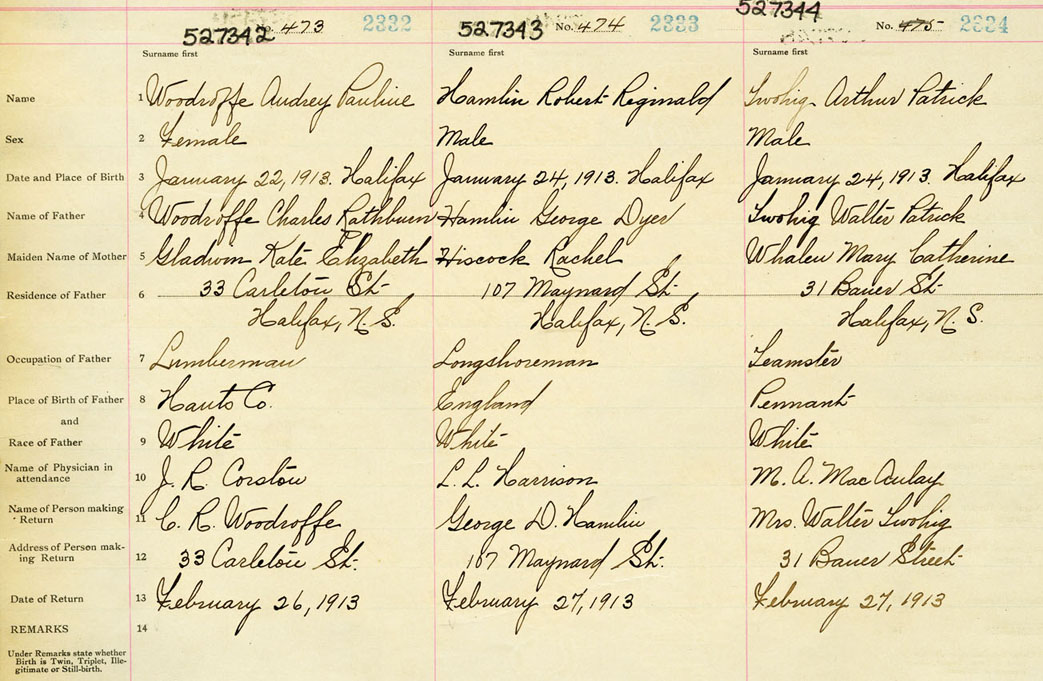 527342 No. 473 2332 527343 No. 474 2333 527344 No. 475 2334
Surname first Surname first Surname first
Name 1 Woodroffe Audrey Pauline Hamlin Robert Reginald Twohig Arthur Patrick
Sex 2 Female Male Male
Date and Place of Birth 3 January 22, 1913. Halifax January 24, 1913. Halifax January 24, 1913. Halifax
Name of Father 4 Woodroffe Charles Rathburn Hamlin George Dyer Twohig Walter Patrick
Maiden Name of Mother 5 Gladwin Kate Elizabeth Hiscock Rachel Whalen Mary Catherine
Residence of Father 6 33 Carleton St. 107 Maynard St. 31 Bauer St.
Halifax, N.S. Halifax, N.S. Halifax, N.S.
Occupation of Father 7 Lumberman Longshoreman Teamster
Place of Birth of Father 8 Hants Co. England Pennant
and
Race of Father 9 White White White
Name of Physician in
attendance 10 J. R. Corston L. L. Harrison M. A. MacAulay
Name of Person making
Return 11 C. R. Woodroffe George D. Hamlin Mrs. Walter Twohig
Address of Person mak-
ing Return 12 33 Carleton St. 107 Maynard St. 31 Bauer Street
Date of Return 13 February 26, 1913 February 27, 1913 February 27, 1913
REMARKS 14
Under Remarks state whether
Birth is Twin, Triplet, Ille-
gitimate or Still-birth.